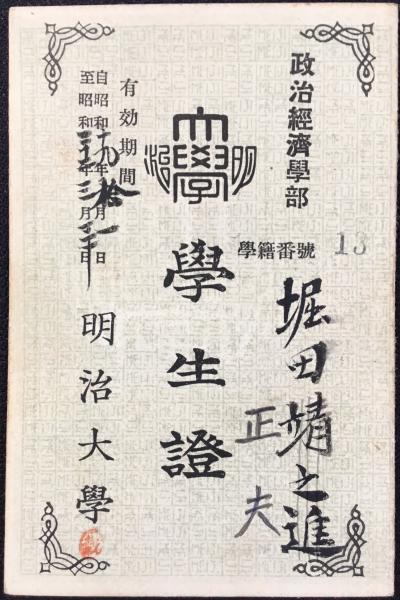 政治經濟學部
學籍番號 13
堀田靖之進
正夫
大學
明治
學生證
有効期間
自昭和 年拾月 日
至昭和 年三月 日
明治大學